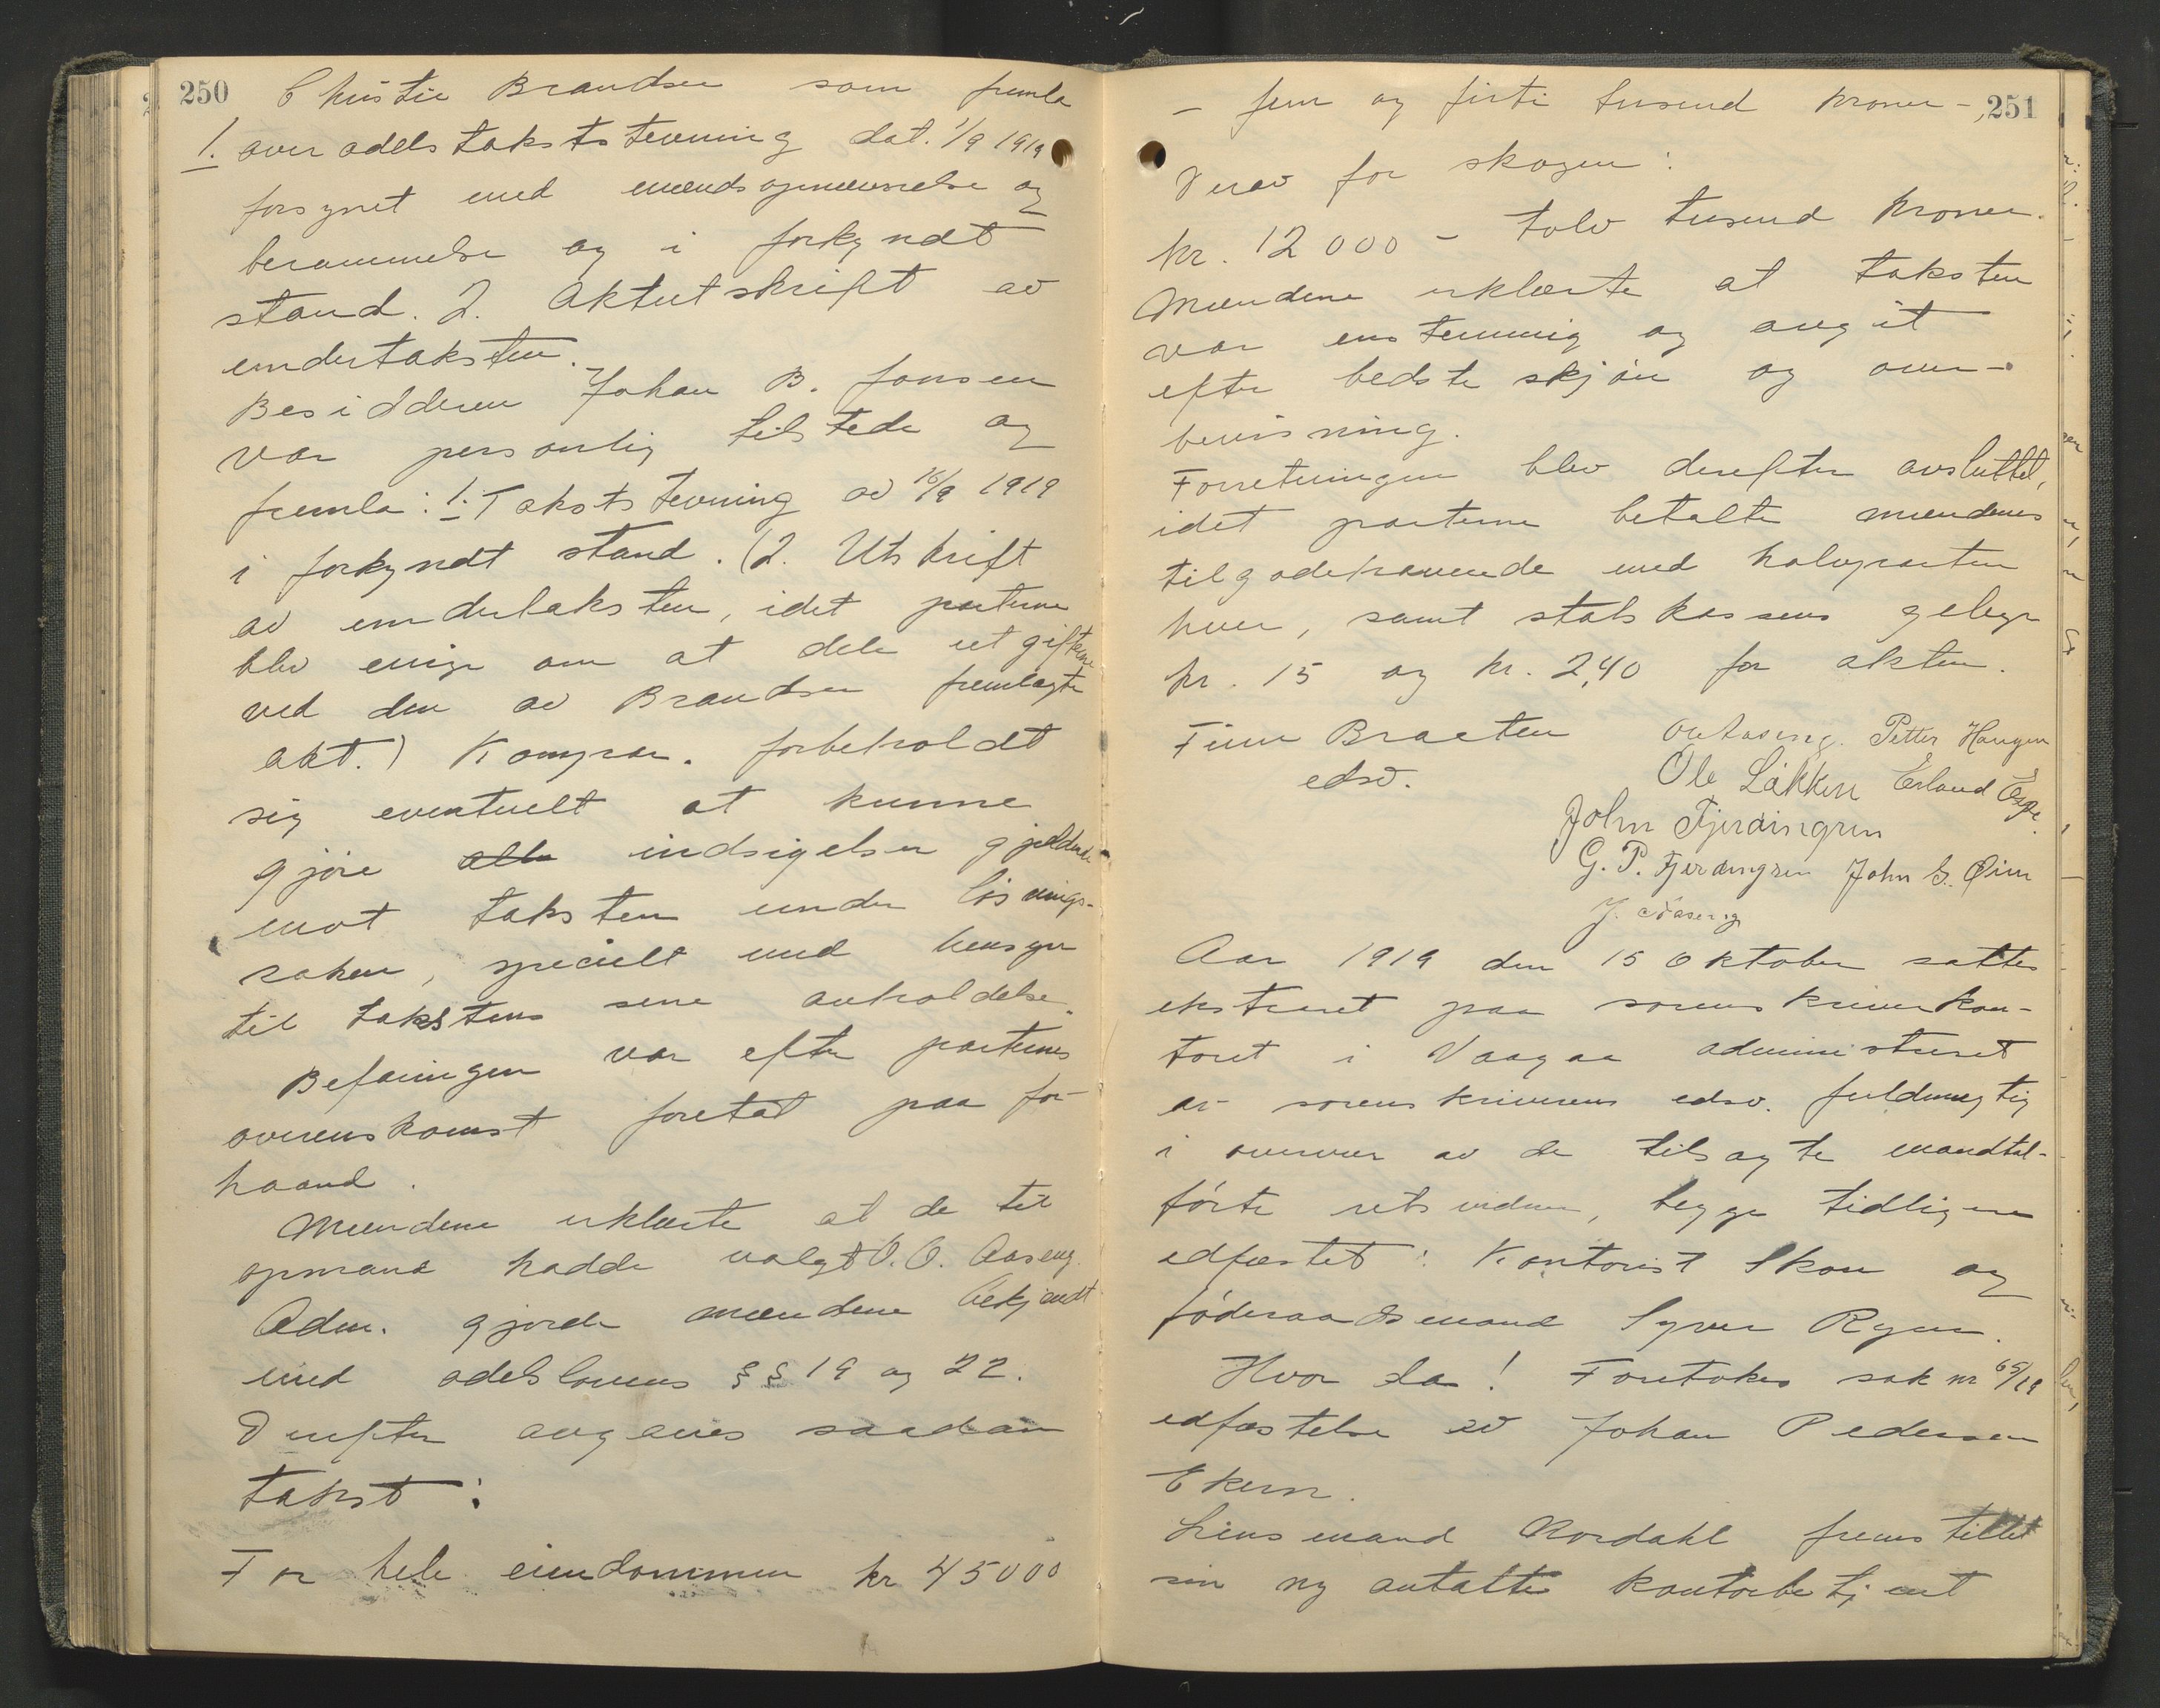 250
Christie Brandser som fremla
1. over odelstakststevning dat. 1/9 1919
forsynet med mændsopnævnelse og
berammelse og i forkyndt
stand. 2. Aktutskrift av
undertaksten.
Besidderen Johan B. Jonsen
var personlig tilstede og
fremla: 1. Takststevning av 16/9 1919
i forkyndt stand. (2. Utskrift
av undertaksten, idet parterne
blev enige om at dele utgifterne
ved den av Brandser fremlagte
akt.) Kompar. forbeholdt
sig eventuelt at kunne
gjøre alle indsigelser gjeldende
mot taksten under løsnings-
saken, specielt med hensyn
til takstens sene avholdelse.
Befaringen var efter parternes
overenskomst foretat paa for-
haand.
Mændene erklærte at de til
opmand hadde valgt O. O. Aaseng.
Adm. gjorde mændene bekjendt
med odelslovens §§ 19 og 22.
Derefter avgaves saadan
takst:
For hele eiendommen kr 45000
251
- fem og firti tusend kroner -,
Derav for skogen:
kr. 12 000 - tolv tusend kroner.
Mændene erklærte at taksten
var enstemmig og avgit
efter bedste skjøn og over-
bevisning.
Forretningen blev derefter avsluttet,
idet parterne betalte mændenes
tilgodehavende med halvparten
hver, samt statskassens gebyr
kr. 15 og kr. 2,40 for akten.
Finn Braaten OAaseng. Petter Haugen
edsv. Ole Løkken Erland
John Fjerdingren
G. P. Fjerdingren John G. Øien
J. Aaseng
Aar 1919 den 15 oktober sattes
ekstraret paa sorenskriverkon-
toret i Vaagaa administreret
av sorenskriverens edsv. fuldmegtig
i overvær av de tilsagte mandtal-
førte retsvidner, begge tidligere
edfæstet: Kontorist Skou og
føderaadsmand Syver Rynn.
Hvor da! Foretokes sak nr 65/19
edfæstelse av Johan Pedersen
Ekern.
Lensmand Nordahl fremstillet
sin ny antatte kontorbetjent